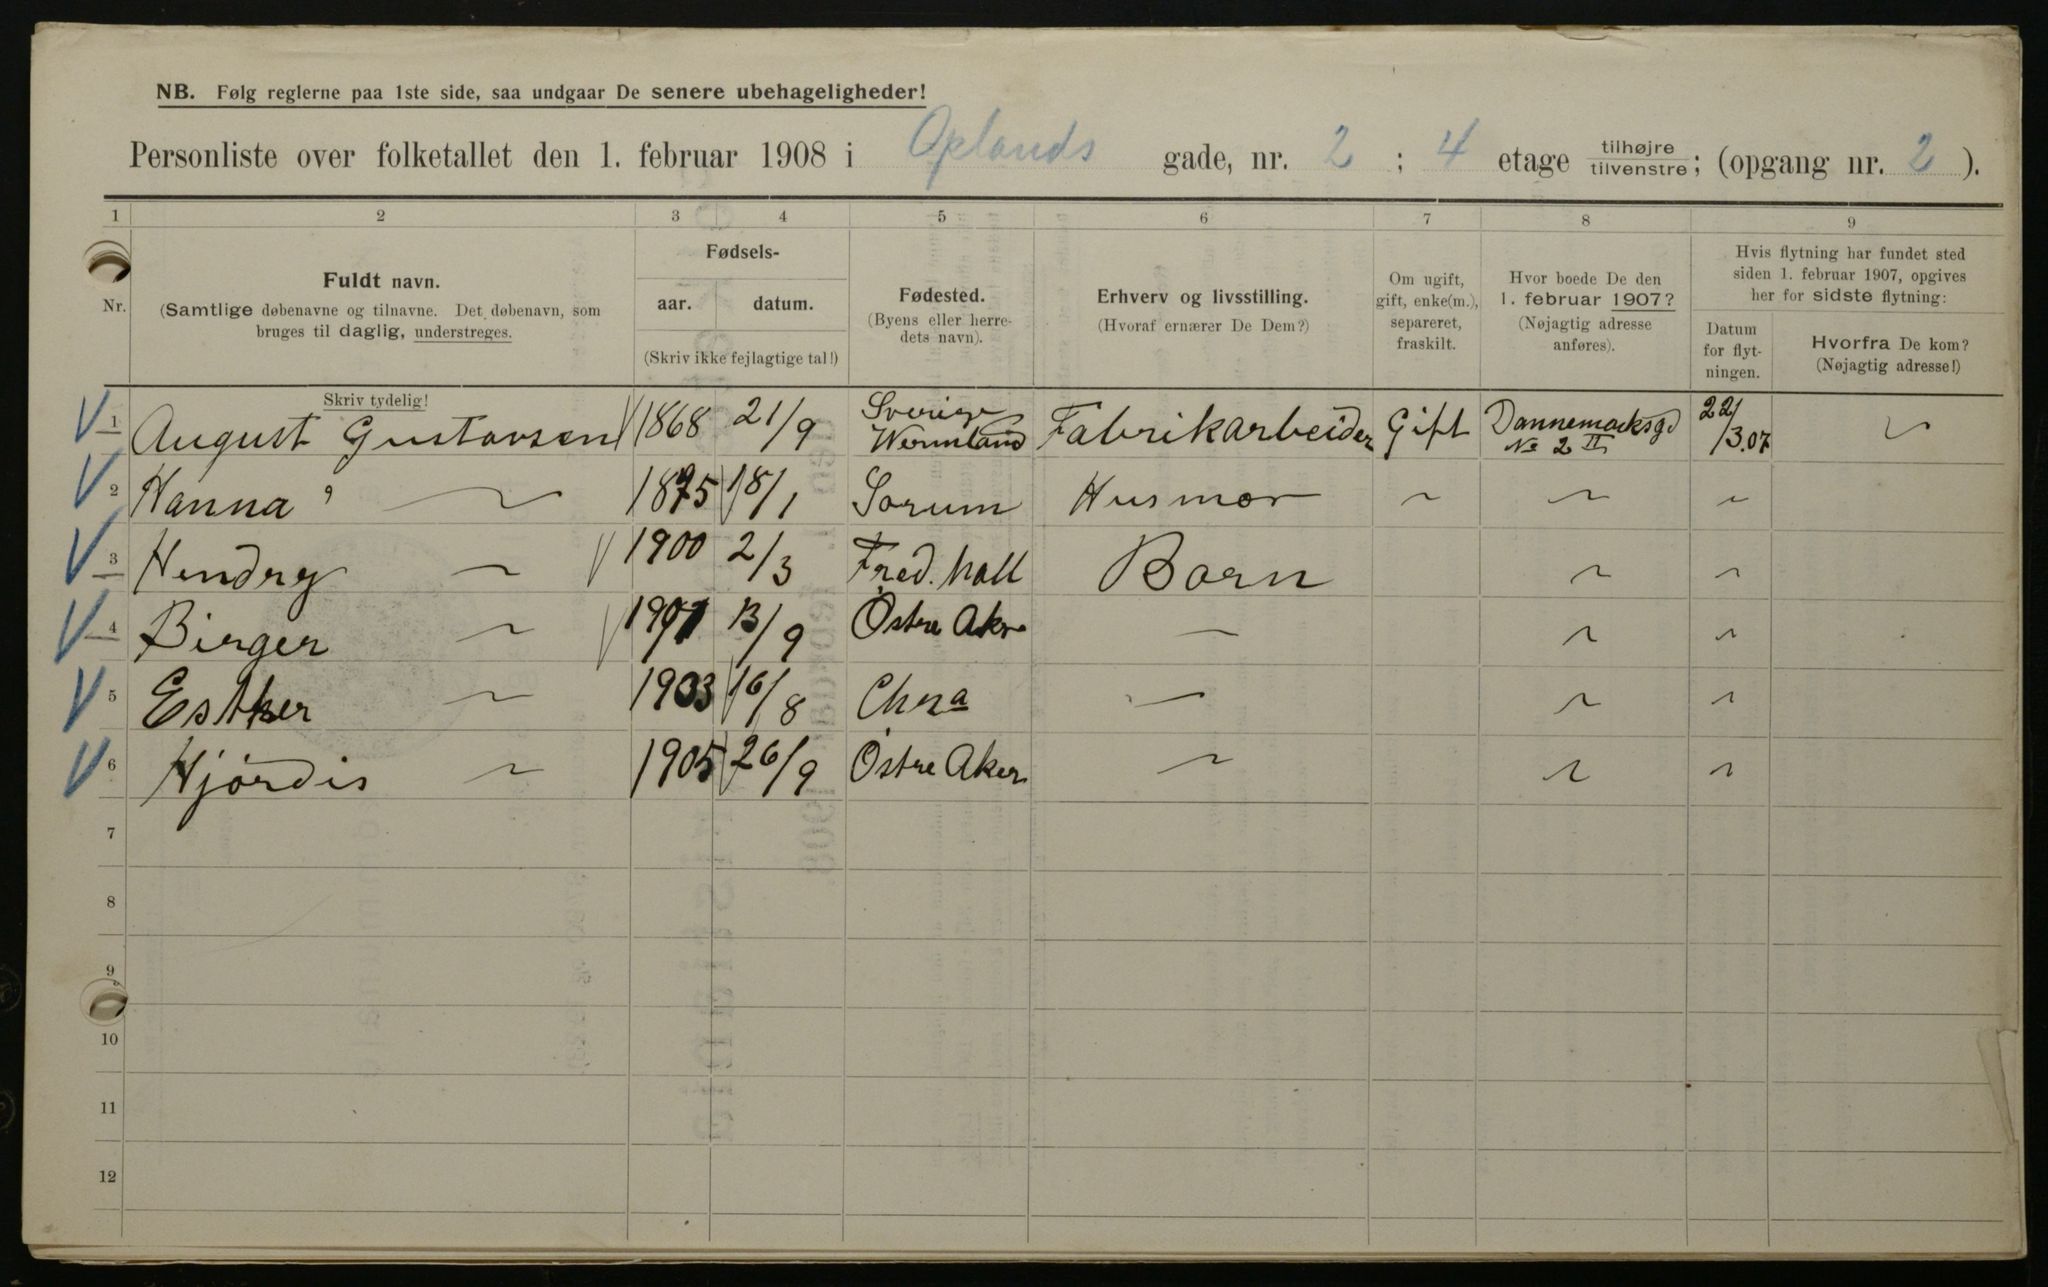 NB. Følg reglerne paa 1ste side, saa undgaar De senere ubehageligheder!
Personliste over folketallet den 1. februar 1908 i Oplands gade, nr. 2 ; 4 etage tilhøjre/tilvenstre; (opgang nr. 2 ).
1 2 3 4 5 6 7 8 9
Nr.
Fuldt navn.
(Samtlige døbenavne og tilnavne. Det døbenavn, som
bruges til daglig, understreges.
Skriv tydelig!
Fødsels-
aar. datum.
(Skriv ikke fejlagtige tal!)
Fødested.
(Byens eller herre-
dets navn).
Erhverv og livsstilling.
(Hvoraf ernærer De Dem?)
Om ugift,
gift, enke(m.),
separeret,
fraskilt.
Hvor boede De den
1. februar 1907?
(Nøjagtig adresse
anføres).
Hvis flytning har fundet sted
siden 1. februar 1907, opgives
her for sidste flytning:
Datum
for flyt-
ningen.
Hvorfra De kom?
(Nøjagtig adresse!)
1 August Gustavsen 1868 21/9 Sverige Wermland Fabrikarbeider Gift Dannemarksgd No 2 II 22/3.07 "
2 Hanna " 1875 18/1 Sorum Husmor " " "
3 Hendry " 1900 2/3 Fred.hall Born " "
4 Birger " 1901 13/9 Østre Aker — " "
5 Esther " 1903 16/8 Chr.a — " "
6 Hjørdis " 1905 26/9 Østre Aker " " "
7
8
9
10
11
12